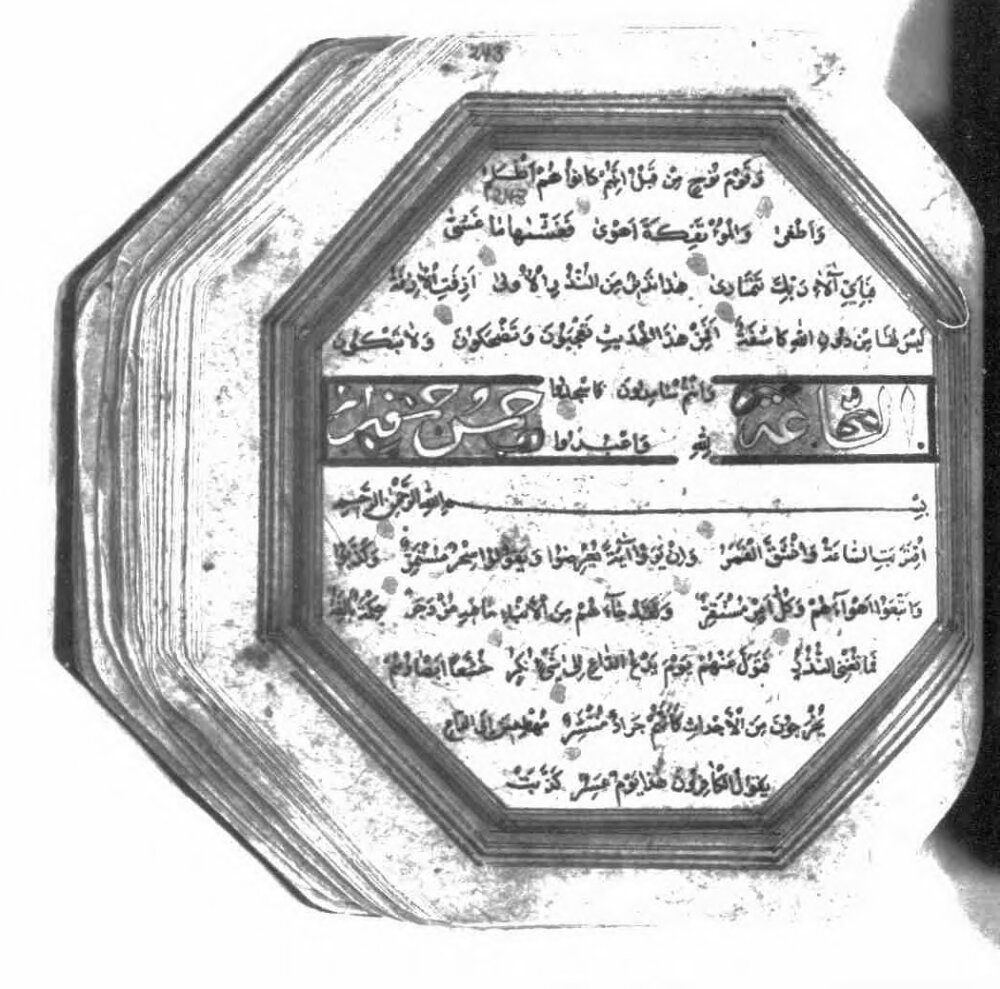 243
وَقَوْمَ نُوحٍ مِنْ قَبْلُ اِنَّهُمْ كَانُوا هُمْ اَظْلَمَ
وَاَطْغٰى وَالْمُؤْتَفِكَةَ اَهْوٰى فَغَشّٰيهَا مَا غَشّٰى
فَبِاَيِّ آلَاءِ رَبِّكَ تَتَمَارٰى هٰذَا نَذِيرٌ مِنَ النُّذُرِ الْاُولٰى اَزِفَتِ الْاٰزِفَةُ
لَيْسَ لَهَا مِنْ دُونِ اللّٰهِ كَاشِفَةٌ اَفَمِنْ هٰذَا الْحَدِيثِ تَعْجَبُونَ وَتَضْحَكُونَ وَلَا تَبْكُونَ
وَاَنْتُمْ سَامِدُونَ فَاسْجُدُوا
لِلّٰهِ وَاعْبُدُوا
بِسْمِ اللّٰهِ الرَّحْمٰنِ الرَّحِيمِ
اِقْتَرَبَتِ السَّاعَةُ وَانْشَقَّ الْقَمَرُ وَاِنْ يَرَوْا آيَةً يُعْرِضُوا وَيَقُولُوا سِحْرٌ مُسْتَمِرٌّ وَكَذَّبُوا
وَاتَّبَعُوا اَهْوَاءَهُمْ وَكُلُّ اَمْرٍ مُسْتَقِرٌّ وَلَقَدْ جَاءَهُمْ مِنَ الْاَنْبَاءِ مَا فِيهِ مُزْدَجَرٌ حِكْمَةٌ بَالِغَةٌ
فَمَا تُغْنِ النُّذُرُ فَتَوَلَّ عَنْهُمْ يَوْمَ يَدْعُ الدَّاعِ اِلٰى شَيْءٍ نُكُرٍ خُشَّعًا اَبْصَارُهُمْ
يَخْرُجُونَ مِنَ الْاَجْدَاثِ كَاَنَّهُمْ جَرَادٌ مُنْتَشِرٌ مُهْطِعِينَ اِلَى الدَّاعِ
يَقُولُ الْكَافِرُونَ هٰذَا يَوْمٌ عَسِرٌ كَذَّبَتْ